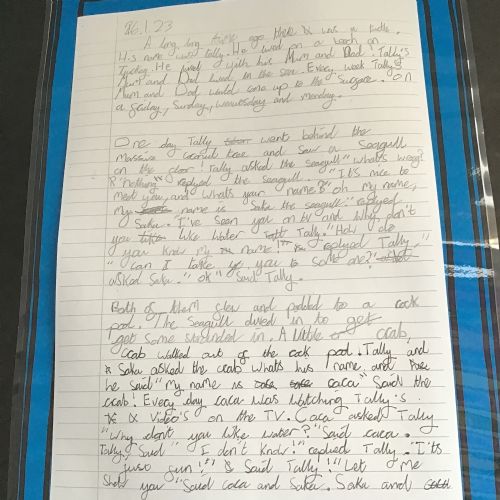 26.1.23
A long, long time ago there was a turtle.
His name was Tally. He lived on a beach on
He lived with his Mum and Dad! Tally's
Mum and Dad lived in the sea. Every week Tally's
Mum and Dad would come up to the surgace. on
a friday, Sunday, and monday.
One day Tally went behind the
massive coconut tree and saw a Seagull
on the floor! Tally asked the seagull "what's wrong?
"nothing" replyed the seagull. "It's nice to
meet you, and what's your name?" oh my name,
my name is Saka the seagull" replyed
Saka. "I've seen you on tv and why don't
you like water Tally. "How do
you know my name!" replyed Tally."
"Can I take you to some one?"
asked Saka." "ok" said Tally.
Both of them flew and padded to a rock
pool. The Seagull dived in to get
got some stranded in. A little crab,
crab walked out of the rock pool. Tally and
Saka asked the crab what's his name, and
he said "my name is caca" Said the
crab! Every day caca was watching Tally's
video's on the TV. Caca asked Tally
"Why don't you like water?" Said caca.
Tally Said "I don't know!" replied Tally. "It's
just fun!" Said Tally! "Let me
show you" Said caca and Saka. Saka and